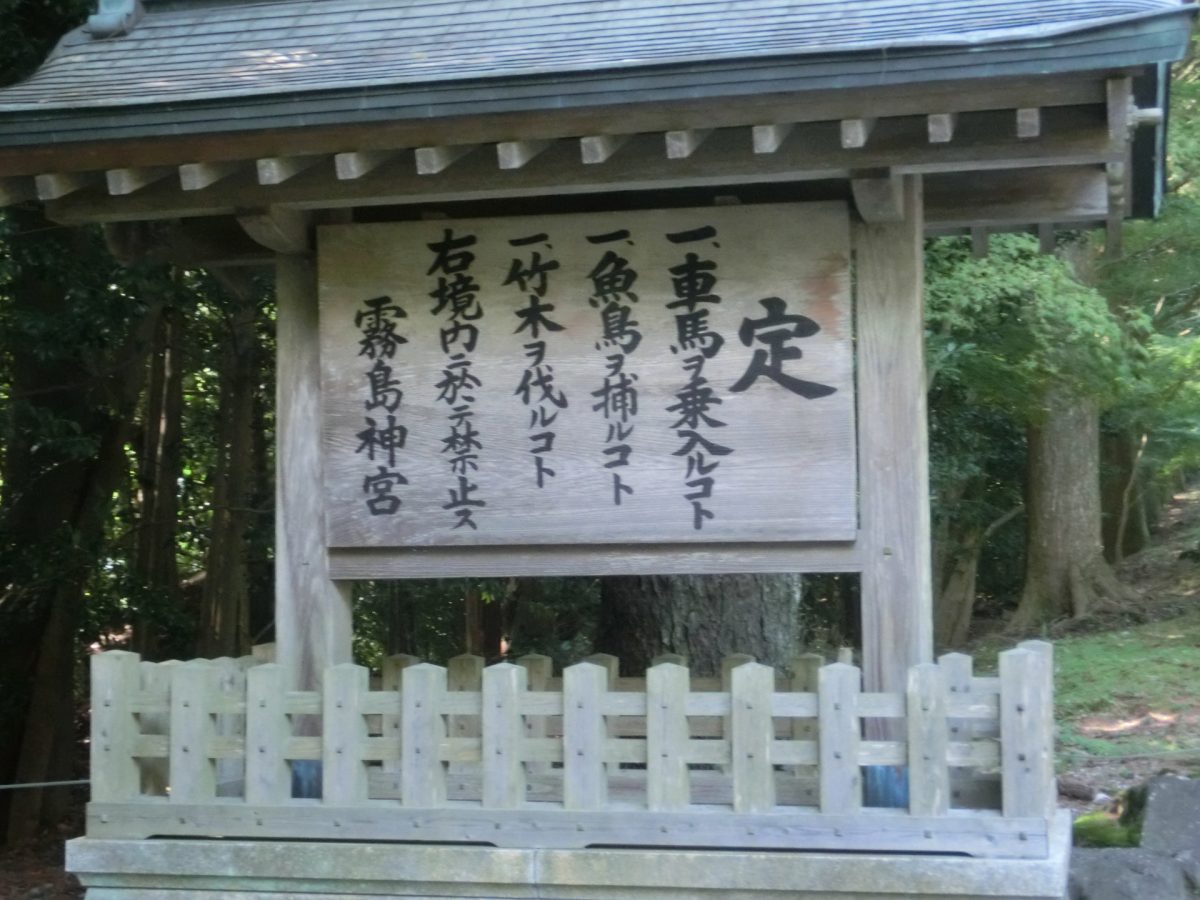 定
一、車馬ヲ乗入ルコト
一、魚鳥ヲ捕ルコト
一、竹木ヲ伐ルコト
右境内ニ於テ禁止ス
霧島神宮